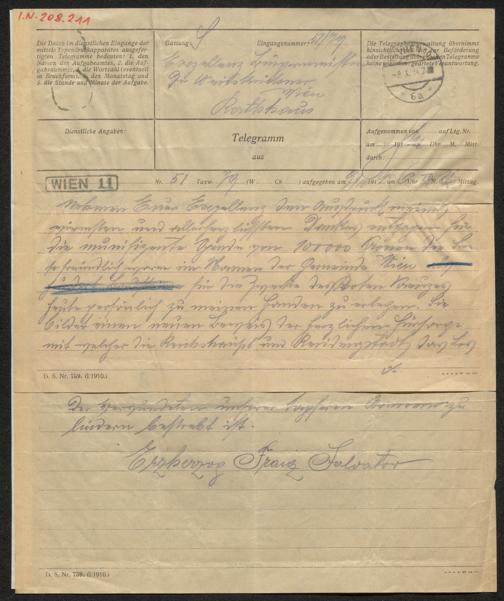 I.N-208.211
Die Daten im dienstlichen Eingange der
mittels Typendruckapparates ausgefer-
tigten Telegramme bedeuten: 1. den
Namen des Aufgabeamtes, 2. die Auf-
gabenummer, 3. die Wortzahl (eventuell
in Bruchform), 4. den Monatstag und
5. die Stunde und Minute der Aufgabe.
Gattung S Eingangsnummer
Exzellenz Bürgermeister
Dr Weiskirchner
Wien
Rathhaus
Die Telegraphenverwaltung übernimmt
hinsichtlich der Beförderung
oder Bestellung
keine Verantwortung.
WIEN
6a
Dienstliche Angaben:
Telegramm
aus
Aufgenommen von auf Ltg. Nr.
am 191 Uhr M. Mitt.
durch:
WIEN 11
Nr. 51 Taxw. 79 (W. Ch. ) aufgegeben am 191 Uhr M. Mittag.
Nehmen Euer Exzellenz den Ausdruck meines
wärmsten und allerherzlichsten Dankes entgegen für
die munifizente Spende von 100000 Kronen die Sie
so freundlich waren im Namen der Gemeinde Wien
für die Zwecke des Roten Kreuzes
heute persönlich zu meinen Handen zu erlegen. Sie
bildet einen neuen Beweis der herzlichen Fürsorge
mit welcher die Reichshaupt und Residenzstadt das Los
D. S. Nr. 759. (I/1910.)
der Verwundeten unserer tapferen Armee zu
lindern bestrebt ist.
Erzherzog Franz Salvator
D. S. Nr. 759. (I/1910.)